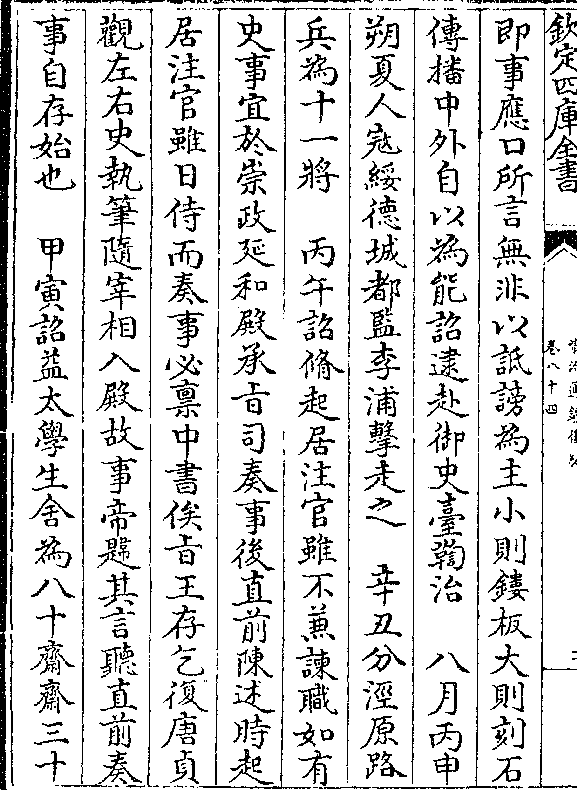 欽定四庫全書
卷八十四
即事應口所言無非以詆謗為主小則鏤板大則刻石
傳播中外自以為能詔逮赴御史臺鞫治　八月丙申
朔夏人寇綏德城都監李浦擊走之　辛丑分涇原路
兵為十一將　丙午詔脩起居注官雖不兼諫職如有
史事宜於崇政延和殿承旨司奏事後直前陳述時起
居注官雖日侍而奏事必稟中書俟旨王存乞復唐貞
觀左右史執筆隨宰相入殿故事帝韙其言聽直前奏
事自存始也　甲寅詔益太學生舍為八十齋齋三十